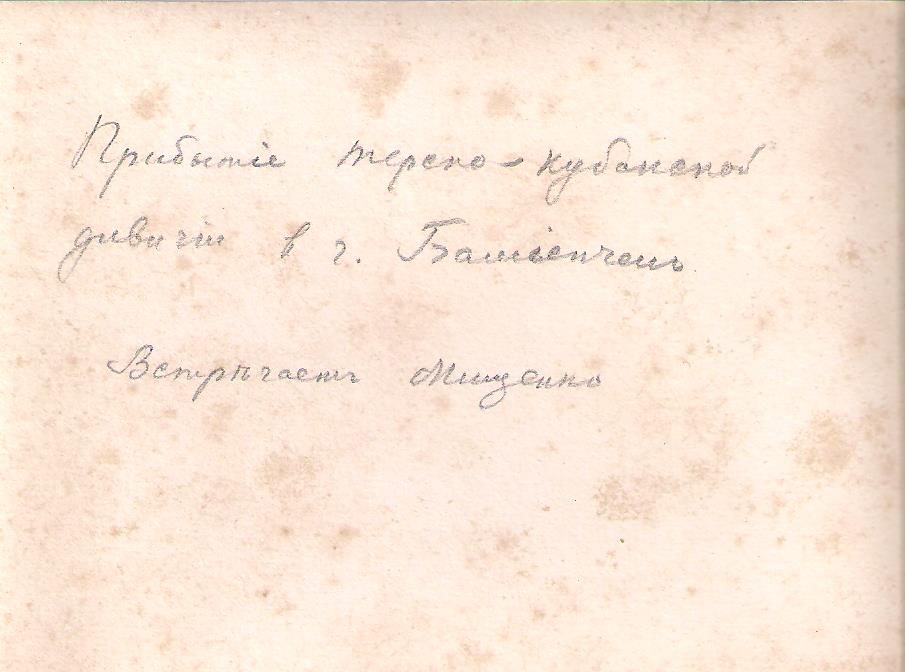 Прибытіе терско-кубанской
дивизіи в г.
Встрѣчаетъ Мищенко